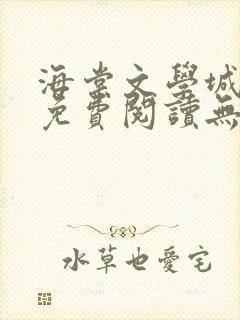 海棠文學城
免費閱讀無
水草也愛宅